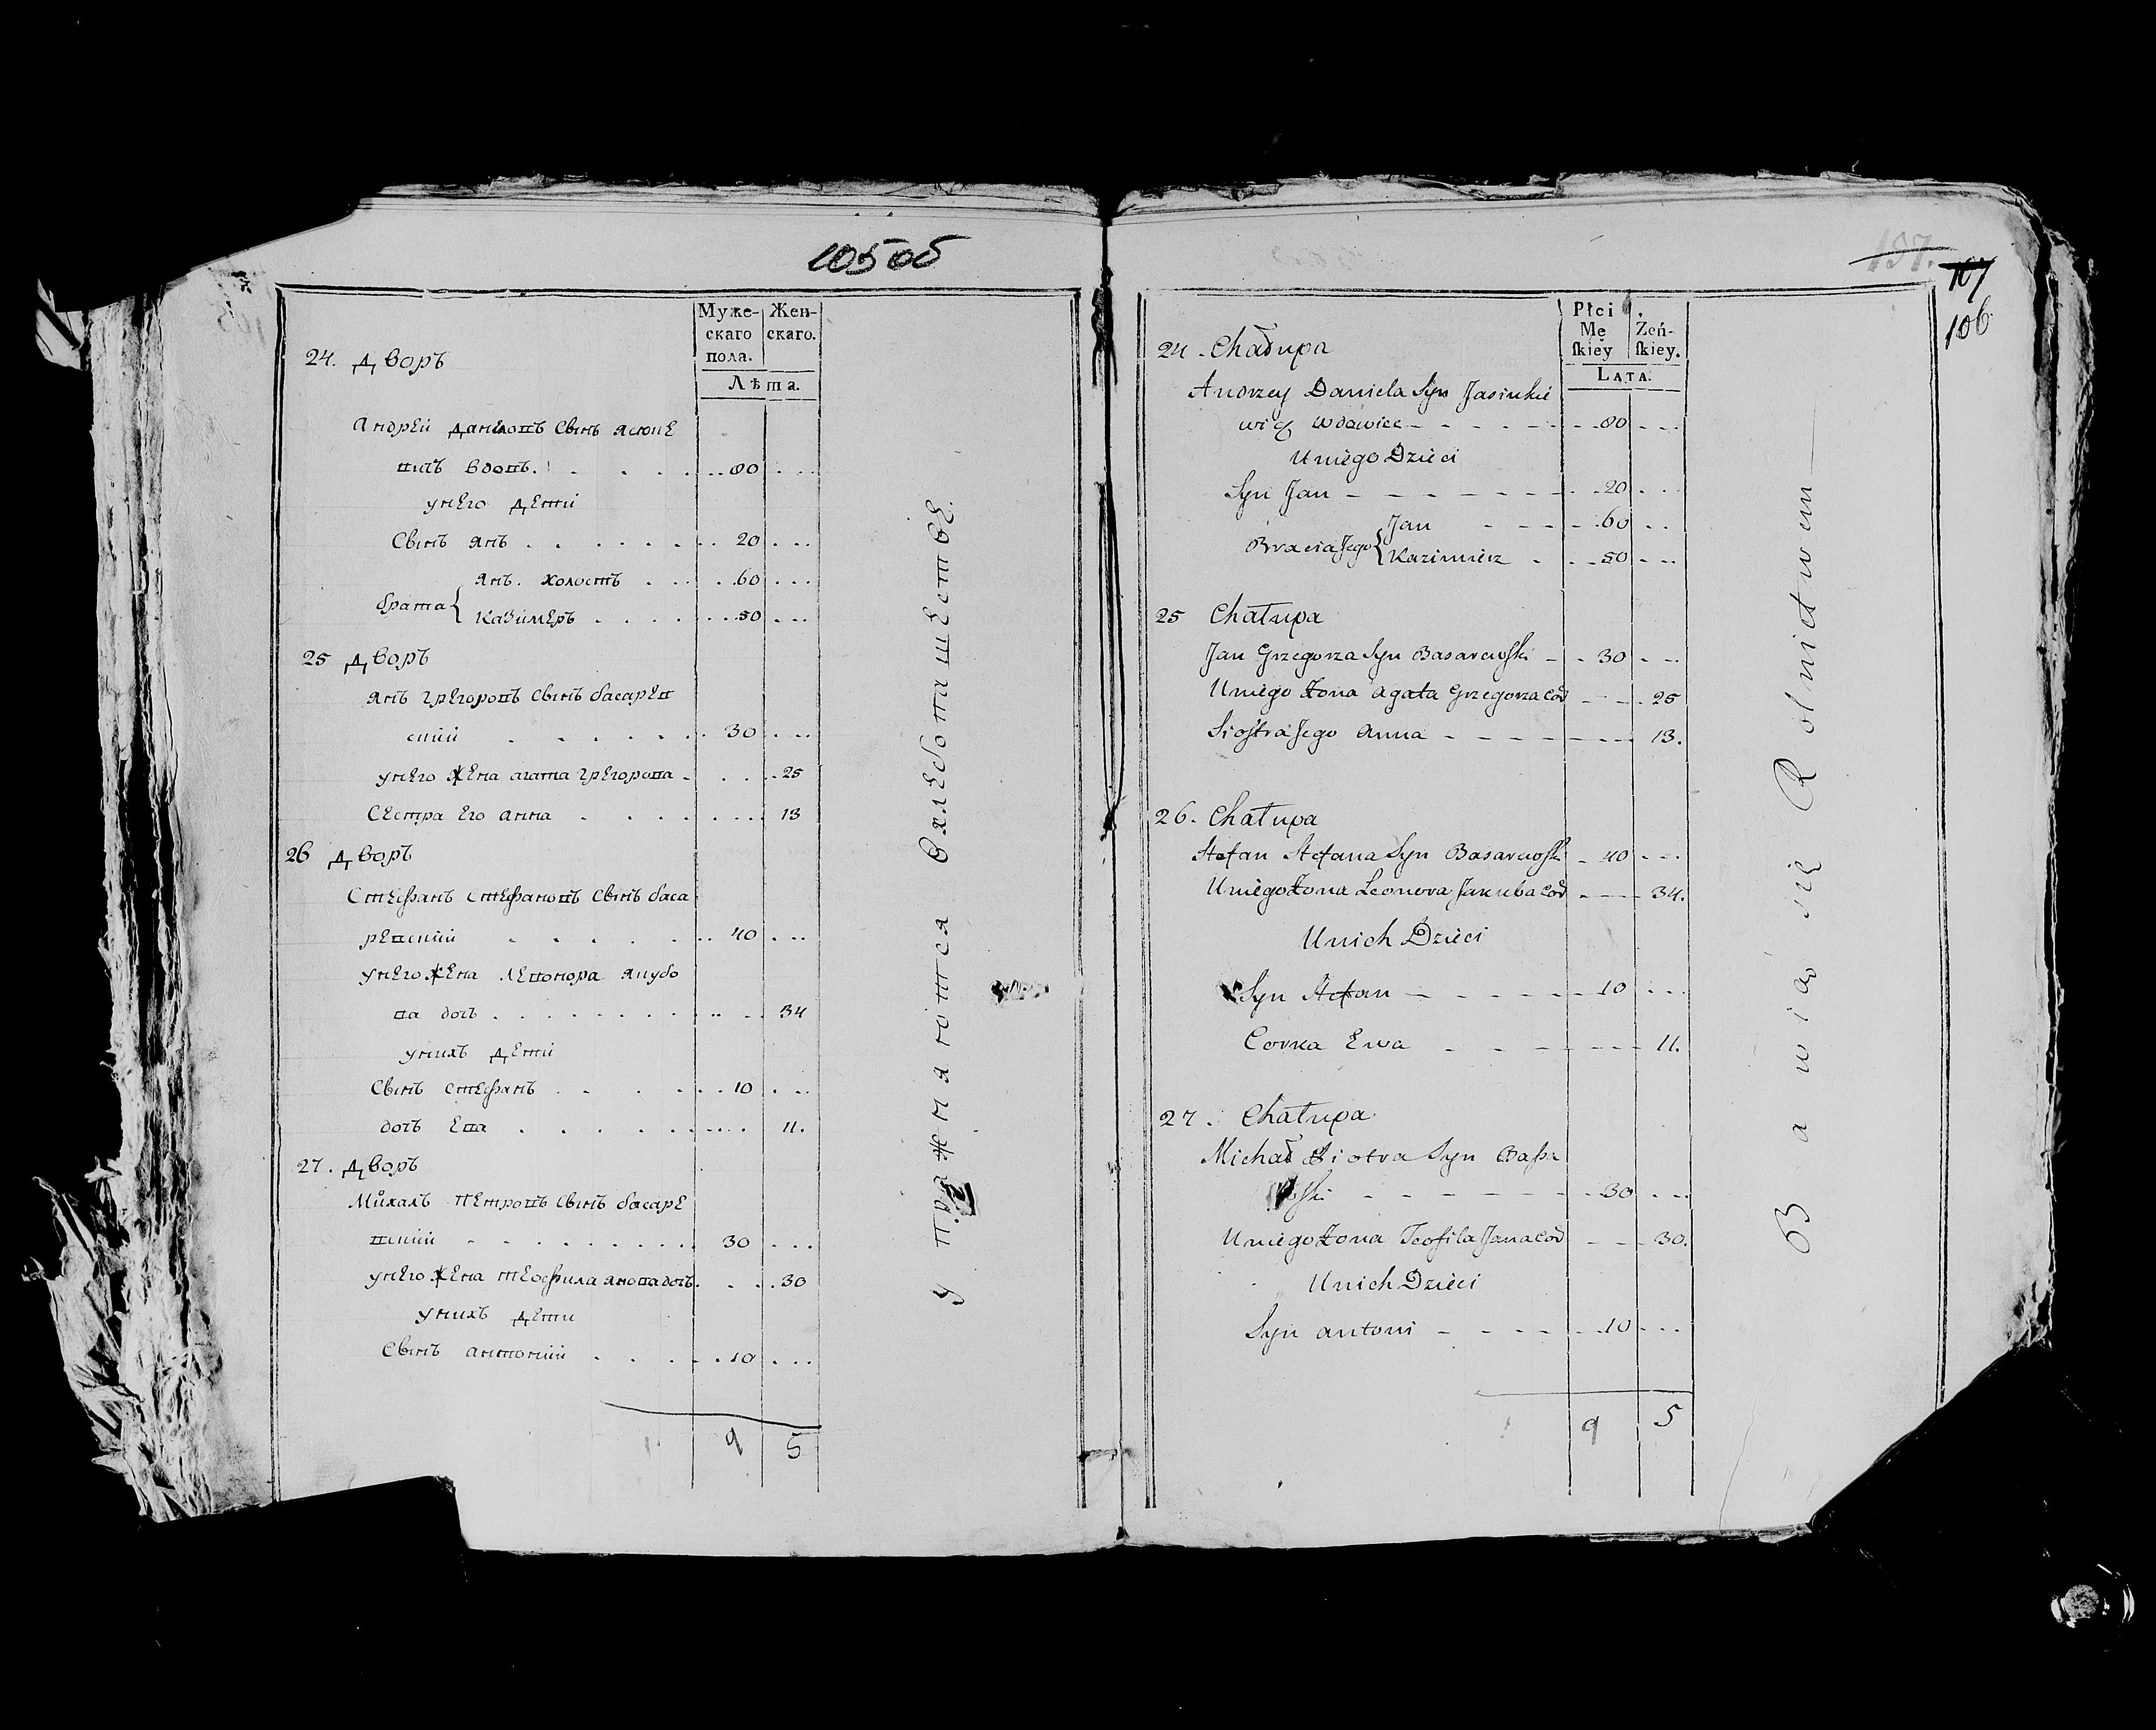 105об
Муже-
скаго
пола.
Жен-
скаго.
Лѣта.
24. дворъ
Андрей даниловъ сынъ ясюке
вичъ вдовъ. 80
унего дети
Сынъ янъ 20
брата { янъ. холостъ 60
казимеръ 50
25 дворъ
янъ грегоровъ сынъ басарев
ский 30
унего жена агата грегорова 25
Сестра его анна 13
26 дворъ
Стефанъ стефановъ сынъ баса
ревский 40
унего жена леонора якубо
ва доч 34
унихъ дети
Сынъ стефанъ 10
дочъ ева 11.
27. дворъ
Михалъ петровъ сынъ басаре
вский 30
унего жена теофила янова доч. 30
унихъ дети
Сынъ антоний 10
9 5
упражняются вхлебопашестве.
107
106
Płci
Mę
ſkiey
Żeń-
ſkiey.
LATA.
24. Chałupa
Andrzey Daniela Syn Jasiukie
wicz wdowiec 80
Uniego Dzieci
Syn Jan 20
Bracia Jego { Jan 60
Kazimierz 50
25 Chałupa
Jan Grzegorza Syn Basarewſki 30
Uniego Żona agata Grzegorza cór 25
Sioſtra Jego Anna 13.
26. Chałupa
Stefan Stefana Syn Basarewſki 40
Uniego Żona Leonora Jakuba cór 34.
Unich Dzieci
Syn Stefan 10
Corka Ewa 11.
27. Chałupa
Michał Piotra Syn
ſki 30
Uniego Żona Teofila Jana cór 30.
Unich Dzieci
Syn antoni 10
9 5
Bawiąsię Rolnictwem